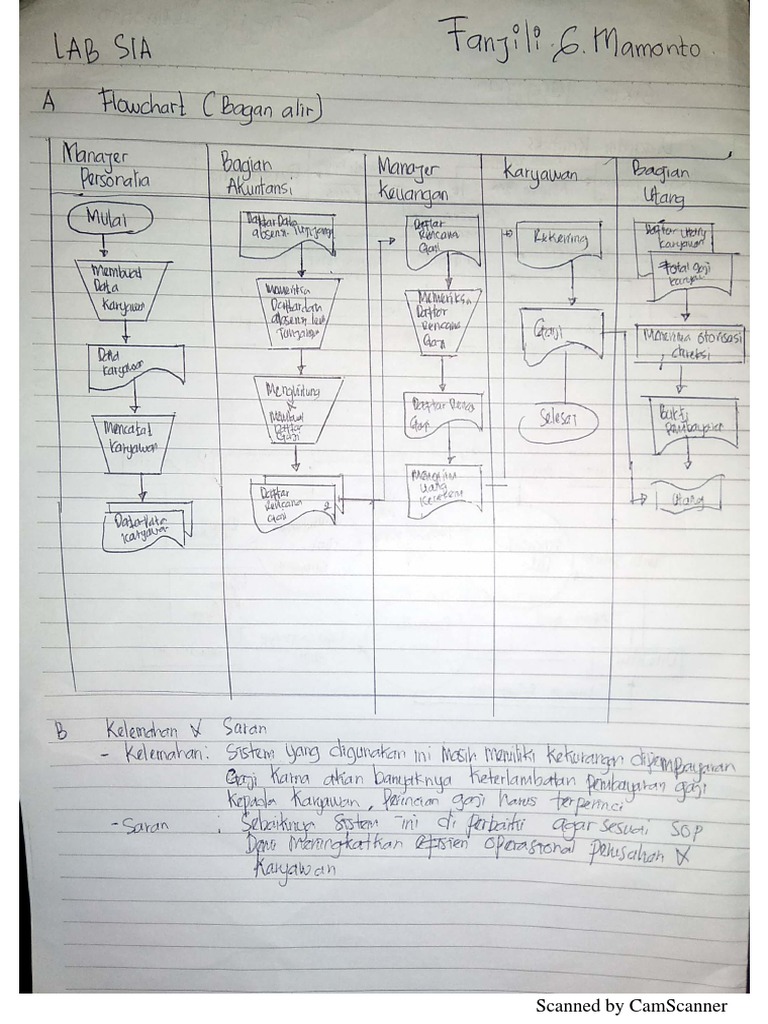 LAB SIA
Fanjili . G. Mamonto
A Flowchart (Bagan alir)
Manajer
Personalia
Bagian
Akuntansi
Manajer
Keuangan
Karyawan
Bagian
Utang
Mulai
Membuat
Data
Karyawan
Data
Karyawan
Mencatat
Karyawan
Karyawan
Daftar Data
absensi
Memeriksa
Menghitung
&
Membuat
Daftar
Gaji
Daftar
Rencana
Gaji
2
Daftar
Rencana
Gaji
Memeriksa
Daftar
Rencana
Gaji
Daftar
Gaji
Uang
Rekening
Gaji
Selesai
Daftar utang
karyawan
Total gaji
karyawan
Menerima otorisasi
Bukti
Pembayaran
Utang
B Kelemahan & Saran
- Kelemahan : Sistem yang digunakan ini masih memiliki kekurangan dipembayaran
Gaji Karna akan banyaknya keterlambatan pembayaran gaji
kepada karyawan, perincian gaji harus terperinci
- Saran : Sebaiknya sistem ini di perbaiki agar sesuai SOP
Dan meningkatkan efisien operasional perusahan &
Karyawan
Scanned by CamScanner